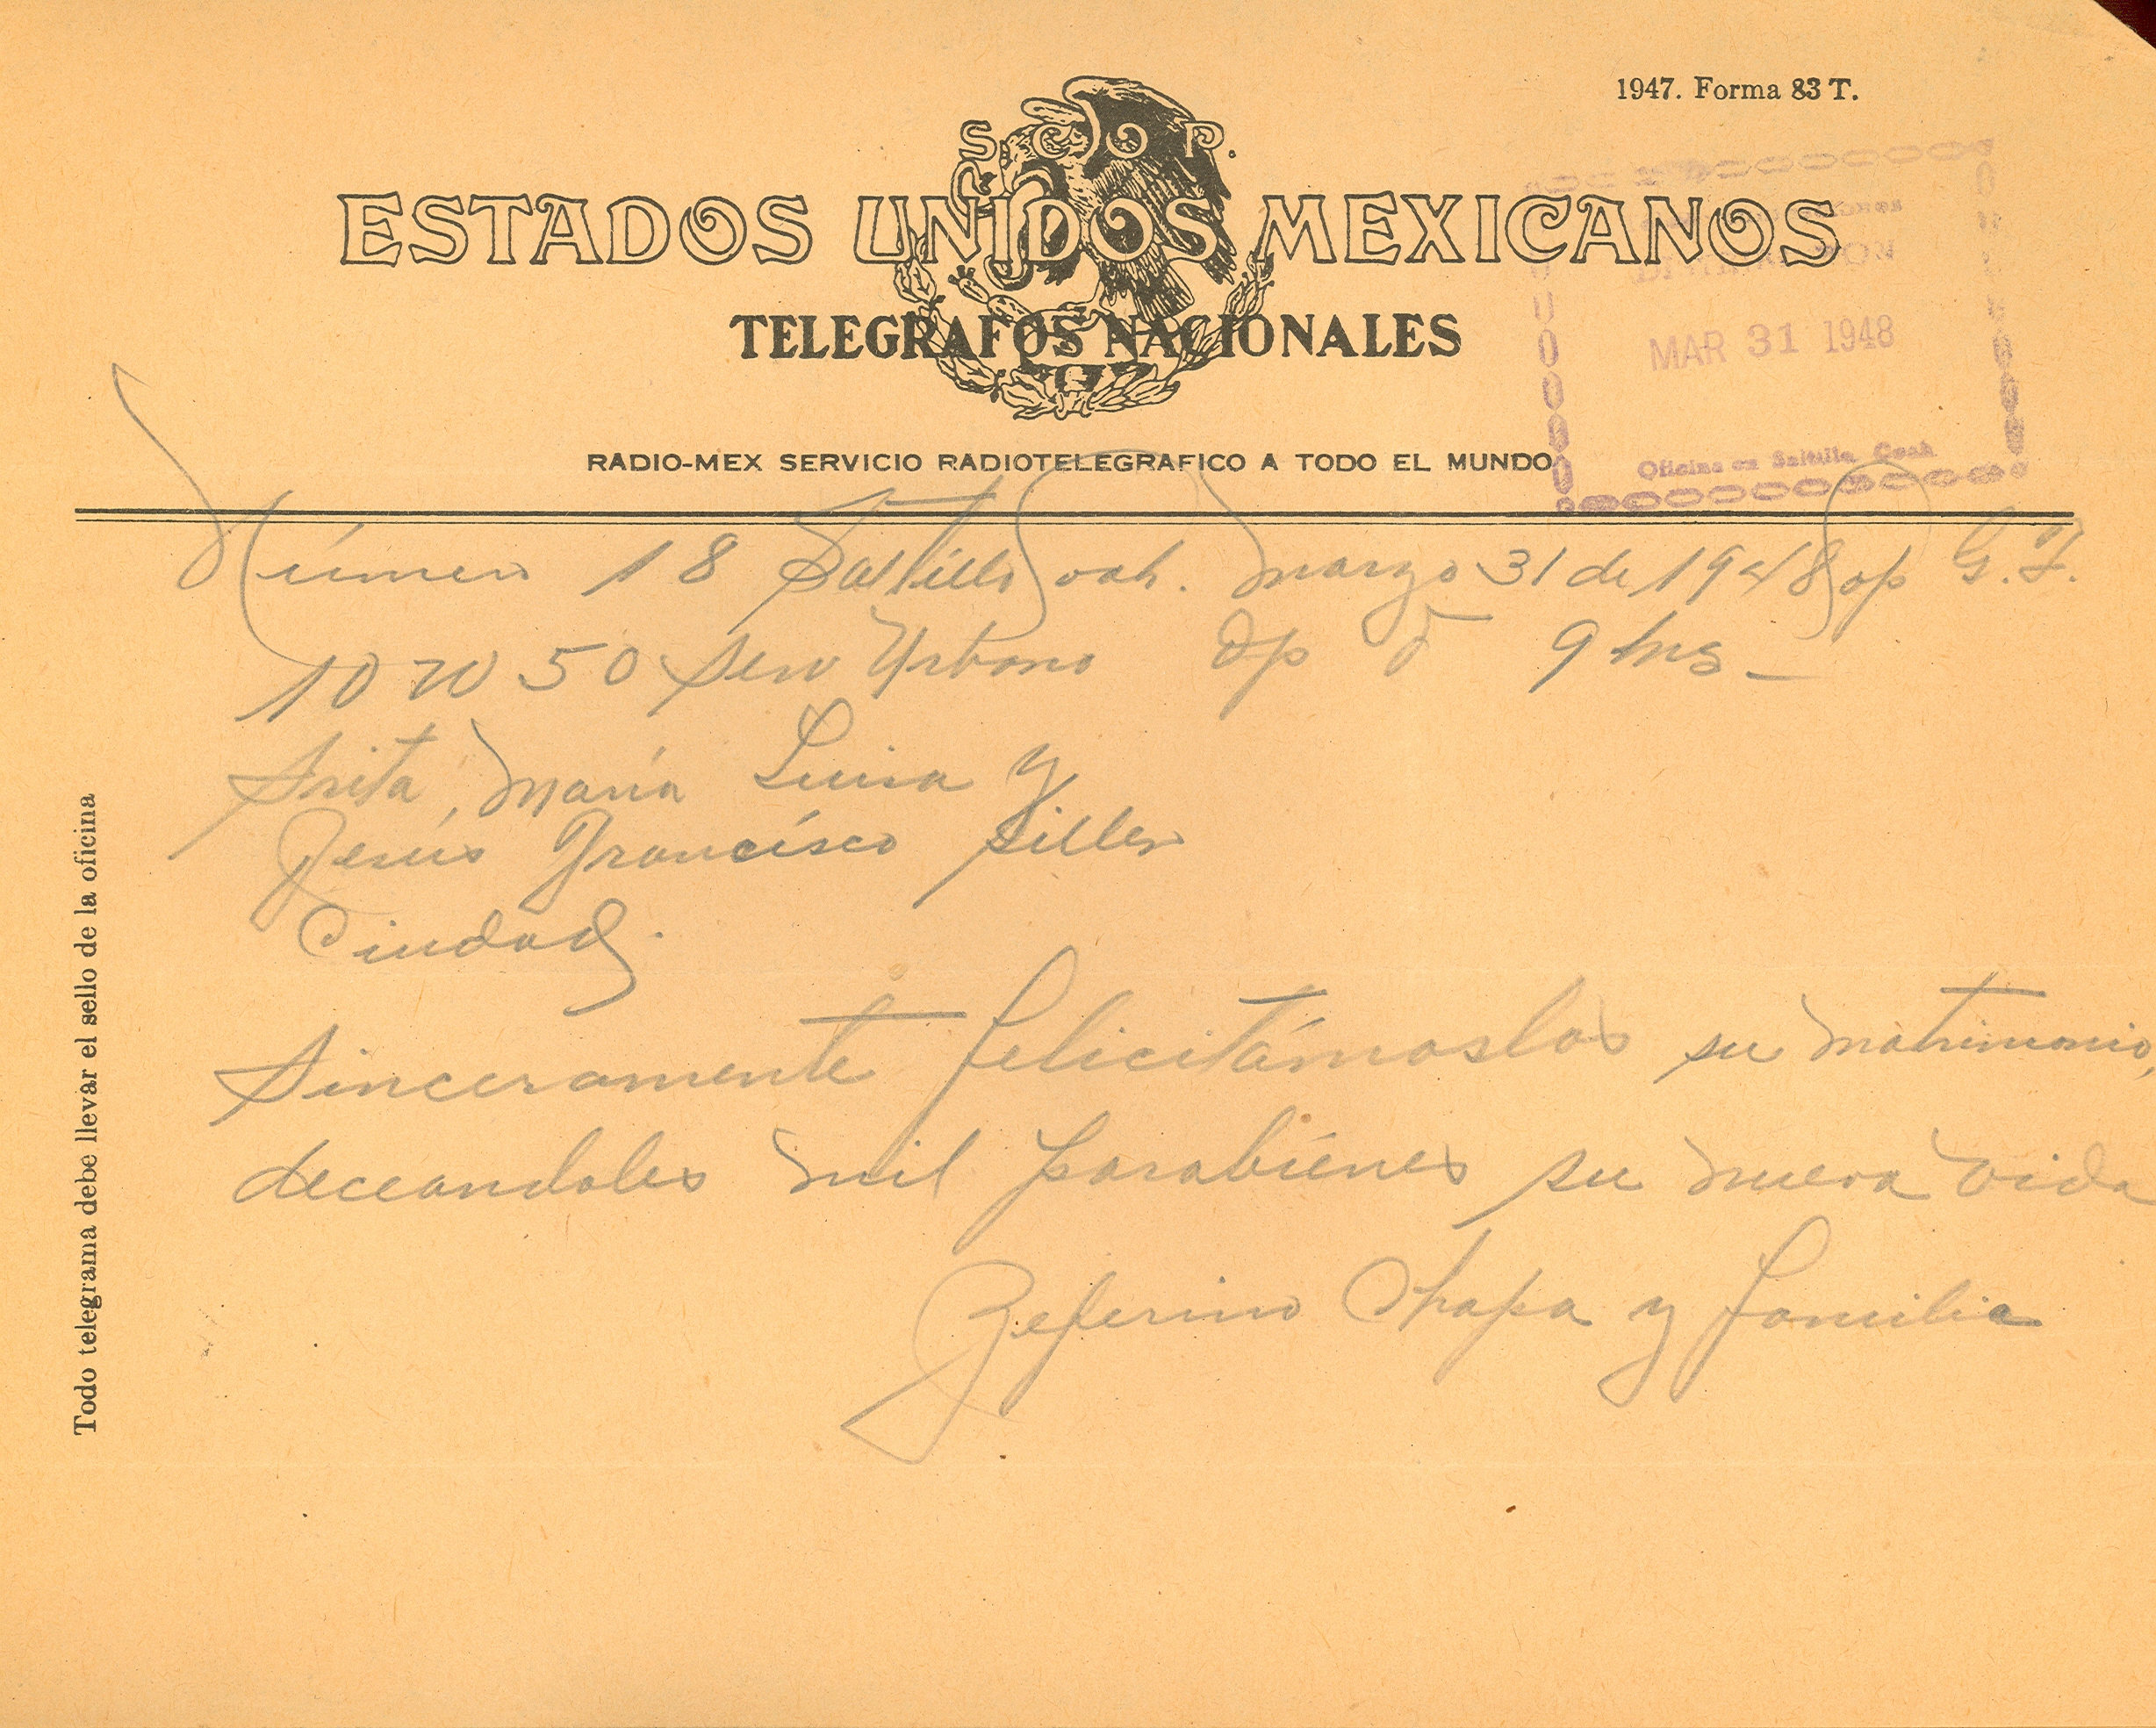 1947. Forma 83 T.
S. C. O P.
ESTADOS UNIDOS MEXICANOS
TELEGRAFOS NACIONALES
MAR 31 1948
RADIO-MEX SERVICIO RADIOTELEGRAFICO A TODO EL MUNDO
Oficina en Saltillo, Coah
Número 18 Saltillo Coah. Marzo 31 de 1948 Op G.F.
10 W 50 Serv Urbano Dp 9 hrs-
Srita. María Luisa y
Jesús Francísco Siller
Ciudad.
Sinceramente felicitámoslos su matrimonio,
deceandoles mil parabiénes su nueva vida
Zeferino Chapa y familia
Todo telegrama debe llevar el sello de la oficina